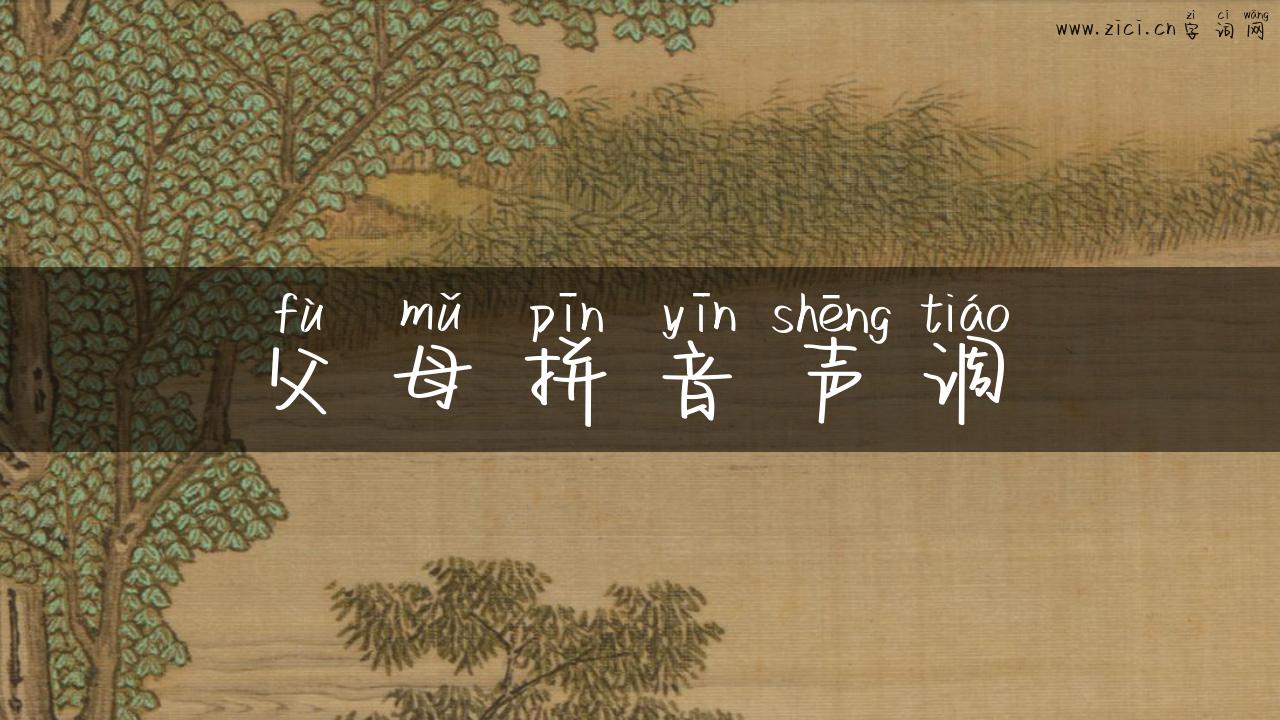 zì cí wǎng
www.zici.cn字词网
fù mǔ pīn yīn shēng tiáo
父母拼音声调